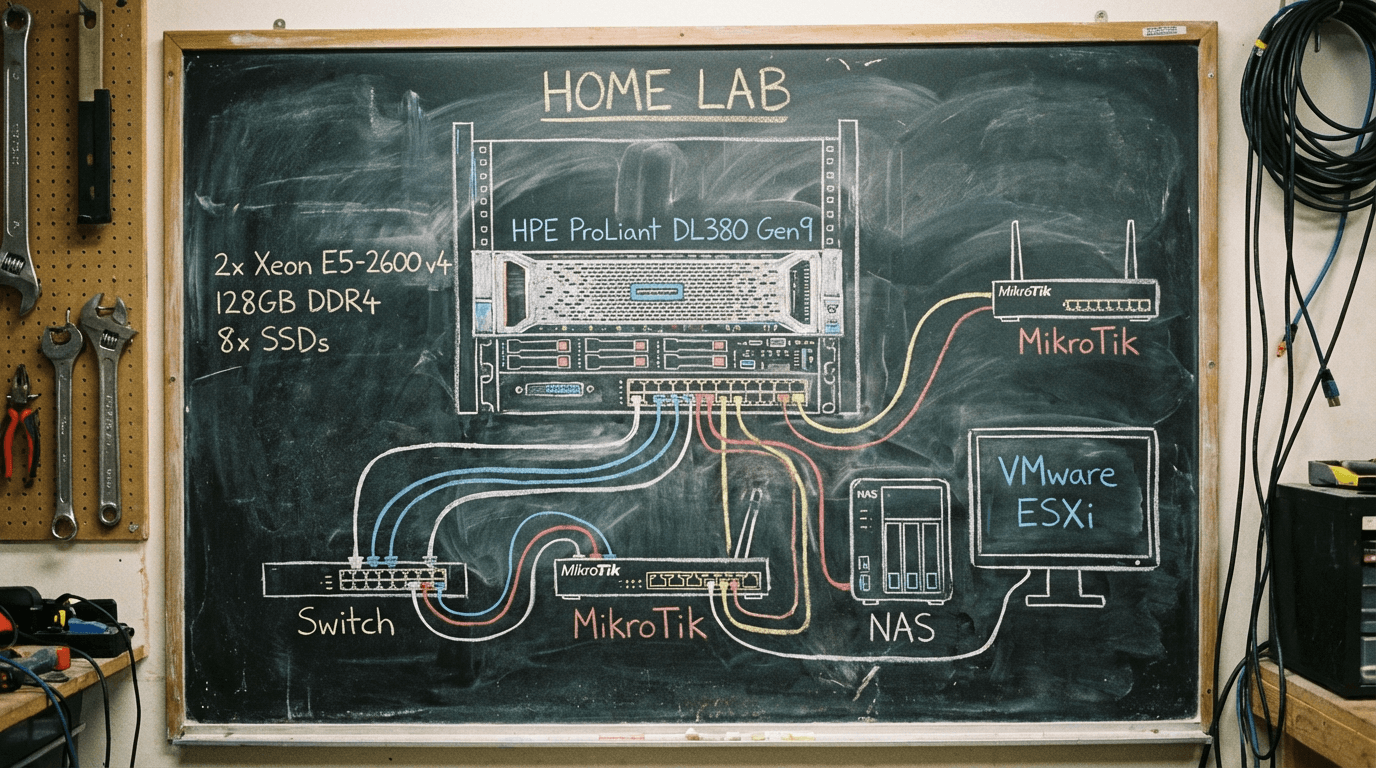 HOME LAB
HPE ProLiant DL380 Gen9
2x Xeon E5-2600 v4
128GB DDR4
8x SSDs
MikroTik
MikroTik
NAS
VMware
ESXi
MikroTik
Switch
MikroTik
NAS